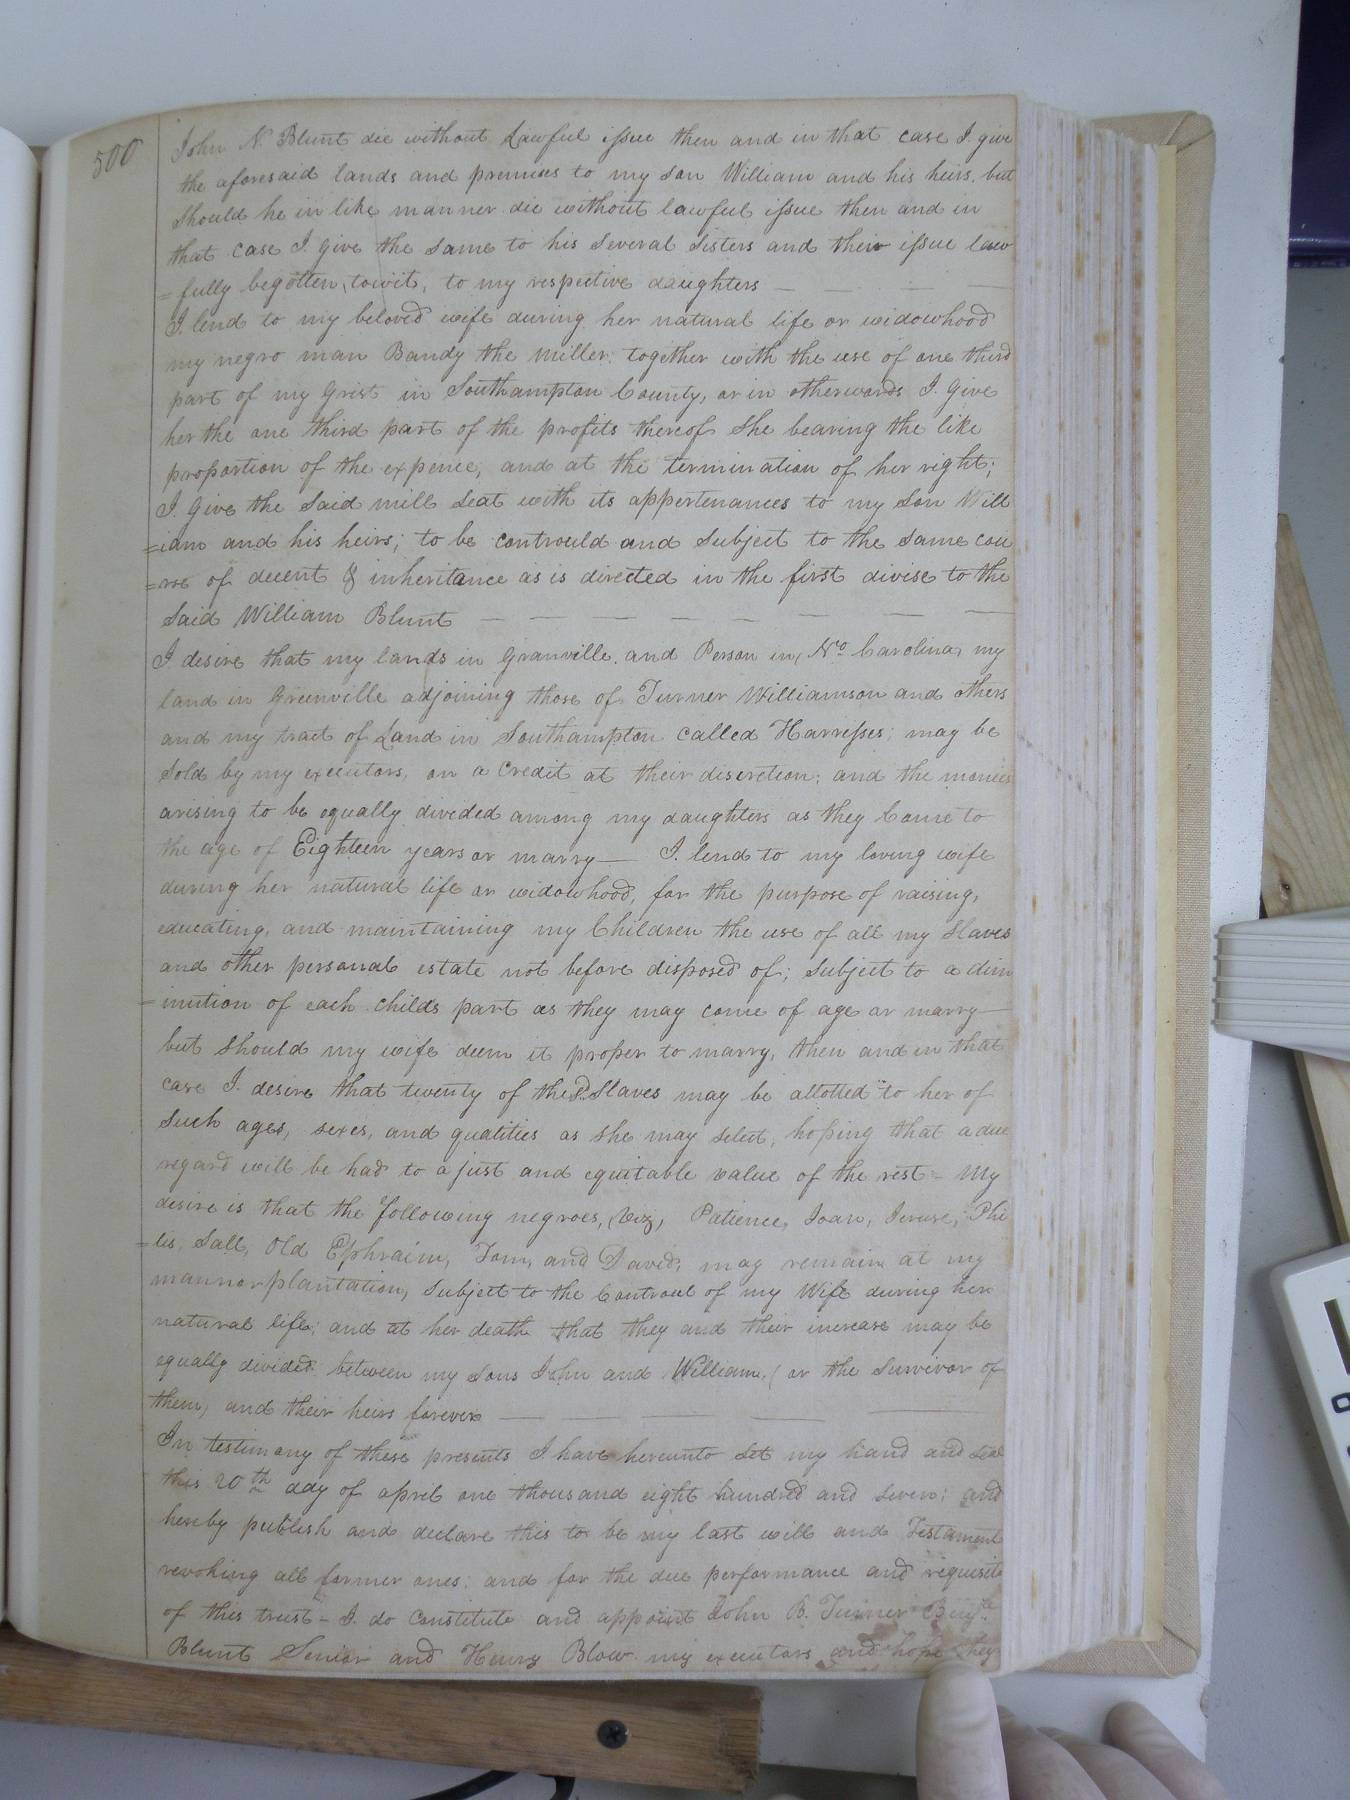 500
John N. Blunt die without Lawful issue then and in that case I give
the aforesaid lands and premises to my son William and his heirs, but
should he in like manner die without lawful issue then and in
that case I give the same to his several sisters and their issue law
=fully begotten, towit, to my respective daughters
I lend to my beloved wife during her natural life or widowhood
my negro man Bandy the Miller, together with the use of one third
part of my Grist in Southampton County, or in otherwords I give
her the one third part of the profits thereof She bearing the like
proportion of the expence, and at the termination of her right;
I Give the said mill seat with its appertenances to my son Will
=iam and his heirs; to be controuled and subject to the same cou
=rse of decent & inheritance as is directed in the first divise to the
said William Blunt
I desire that my lands in Granville and Person in No Carolina, my
land in Greenville adjoining those of Turner Williamson and others
and my tract of Land in Southampton called Harresses; may be
sold by my executors, on a credit at their discretion; and the monies
arising to be equally divided among my daughters as they Come to
the age of Eighteen years or marry — I lend to my loving wife
during her natural life or widowhood, for the purpose of raising,
educating, and maintaining my Children the use of all my Slaves
and other personal estate not before disposed of; subject to a dim
=inution of each childs part as they may come of age or marry
but should my wife deem it proper to marry, then and in that
case I desire that twenty of the sd. Slaves may be allotted to her of
such ages, sexes, and qualities as she may select, hoping that a due
regard will be had to a just and equitable value of the rest - My
desire is that the following negroes, Viz, Patience, Joan, Jeruse, Phi
=lis, Sall, Old Ephraim, Tom, and David, may remain at my
mannor plantation, subject to the Controul of my Wife during her
natural life; and at her death that they and their increase may be
equally divided between my sons John and William, (or the survivor of
them) and their heirs forever
In testimony of these presents I have hereunto set my hand and seal
this 20th day of april one thousand eight hundred and seven; and
hereby publish and declare this to be my last will and Testament
revoking all former ones; and for the due performance and requisite
of this trust - I do constitute and appoint John B. Turner
Blunt Senior and Henry Blow my executors and hope they